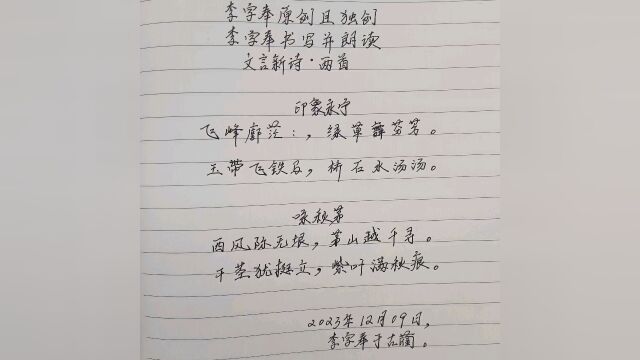 李字奉原创且独创
李字奉书写并朗读
文言新诗·两首
印象永宁
飞峰廓茫：，绿草薛芬芳。
玉带飞铁马，桥石水汤汤。
咏秋茅
西风际无垠，茅山越千寻。
千茎犹挺立，紫叶满秋痕。
2023年12月09日，
李字奉于古